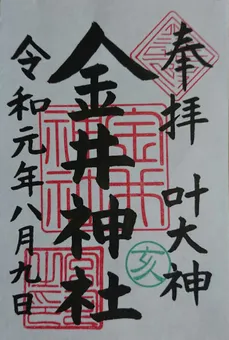 奉拝
叶大神
金井神社
令和元年八月九日
亥